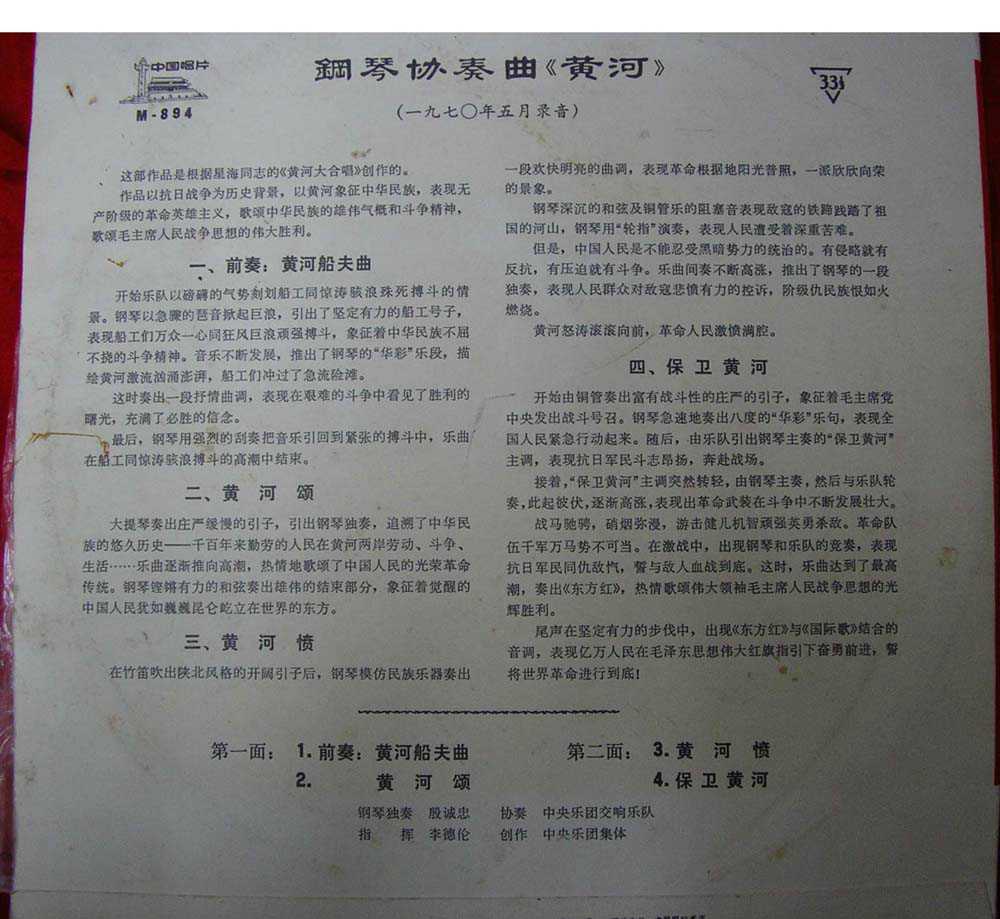 中国唱片
M-894
鋼琴协奏曲《黄河》
33⅓
(一九七〇年五月录音)
这部作品是根据星海同志的《黄河大合唱》创作的。
作品以抗日战争为历史背景，以黄河象征中华民族，表现无
产阶级的革命英雄主义，歌颂中华民族的雄伟气概和斗争精神，
歌颂毛主席人民战争思想的伟大胜利。
一、前奏：黄河船夫曲
开始乐队以磅礴的气势刻划船工同惊涛骇浪殊死搏斗的情
景。钢琴以急骤的琶音掀起巨浪，引出了坚定有力的船工号子，
表现船工们万众一心同狂风巨浪顽强搏斗，象征着中华民族不屈
不挠的斗争精神。音乐不断发展，推出了钢琴的“华彩”乐段，描
绘黄河激流汹涌澎湃，船工们冲过了急流险滩。
这时奏出一段抒情曲调，表现在艰难的斗争中看见了胜利的
曙光，充满了必胜的信念。
最后，钢琴用强烈的刮奏把音乐引回到紧张的搏斗中，乐曲
在船工同惊涛骇浪搏斗的高潮中结束。
二、黄河颂
大提琴奏出庄严缓慢的引子，引出钢琴独奏，追溯了中华民
族的悠久历史——千百年来勤劳的人民在黄河两岸劳动、斗争、
生活……乐曲逐渐推向高潮，热情地歌颂了中国人民的光荣革命
传统。钢琴铿锵有力的和弦奏出雄伟的结束部分，象征着觉醒的
中国人民犹如巍巍昆仑屹立在世界的东方。
三、黄河愤
在竹笛吹出陕北风格的开阔引子后，钢琴模仿民族乐器奏出
一段欢快明亮的曲调，表现革命根据地阳光普照，一派欣欣向荣
的景象。
钢琴深沉的和弦及铜管乐的阻塞音表现敌寇的铁蹄践踏了祖
国的河山，钢琴用“轮指”演奏，表现人民遭受着深重苦难。
但是，中国人民是不能忍受黑暗势力的统治的。有侵略就有
反抗，有压迫就有斗争。乐曲间奏不断高涨，推出了钢琴的一段
独奏，表现人民群众对敌寇悲愤有力的控诉，阶级仇民族恨如火
燃烧。
黄河怒涛滚滚向前，革命人民激愤满腔。
四、保卫黄河
开始由铜管奏出富有战斗性的庄严的引子，象征着毛主席党
中央发出战斗号召。钢琴急速地奏出八度的“华彩”乐句，表现全
国人民紧急行动起来。随后，由乐队引出钢琴主奏的“保卫黄河”
主调，表现抗日军民斗志昂扬，奔赴战场。
接着，“保卫黄河”主调突然转轻，由钢琴主奏，然后与乐队轮
奏，此起彼伏，逐渐高涨，表现出革命武装在斗争中不断发展壮大。
战马驰骋，硝烟弥漫，游击健儿机智顽强英勇杀敌。革命队
伍千军万马势不可当。在激战中，出现钢琴和乐队的竞奏，表现
抗日军民同仇敌忾，誓与敌人血战到底。这时，乐曲达到了最高
潮，奏出《东方红》，热情歌颂伟大领袖毛主席人民战争思想的光
辉胜利。
尾声在坚定有力的步伐中，出现《东方红》与《国际歌》结合的
音调，表现亿万人民在毛泽东思想伟大红旗指引下奋勇前进，誓
将世界革命进行到底！
第一面：1.前奏：黄河船夫曲
2.黄河颂
第二面：3.黄河愤
4.保卫黄河
钢琴独奏 殷诚忠 协奏 中央乐团交响乐队
指挥 李德伦 创作 中央乐团集体